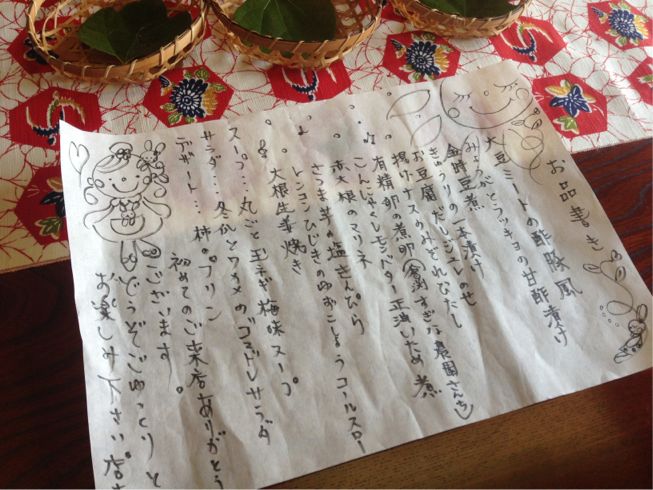 お品書き
大豆ミートの酢豚風
みょうがとズッキーニの甘酢漬け
金時豆煮
きゅうりの一本漬け
お豆腐だしジュレのせ
揚げナスのみぞれびたし
有精卵の煮卵(すぎな農園さんち)
こんにゃくレモンバター正油いため煮
赤大根のマリネ
さつま芋の塩きんぴら
レンコンひじきのゆずこしょうコールスロー
大根生姜焼き
スープ…丸ごと玉ネギ梅味スープ
サラダ…冬瓜とワカメの
サラダ
デザート…柿のプリン
初めてのご来店ありがとう
ございます。
どうぞごゆっくりと
お楽しみ下さい。